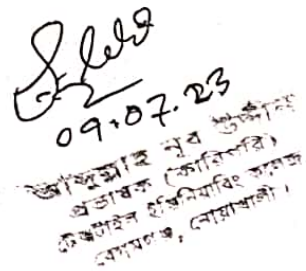 09.07.23
নুর
প্রভাষক (কারিগরি)
টেক্সটাইল ইঞ্জিনিয়ারিং কলেজ
বেগমগঞ্জ, নোয়াখালী।